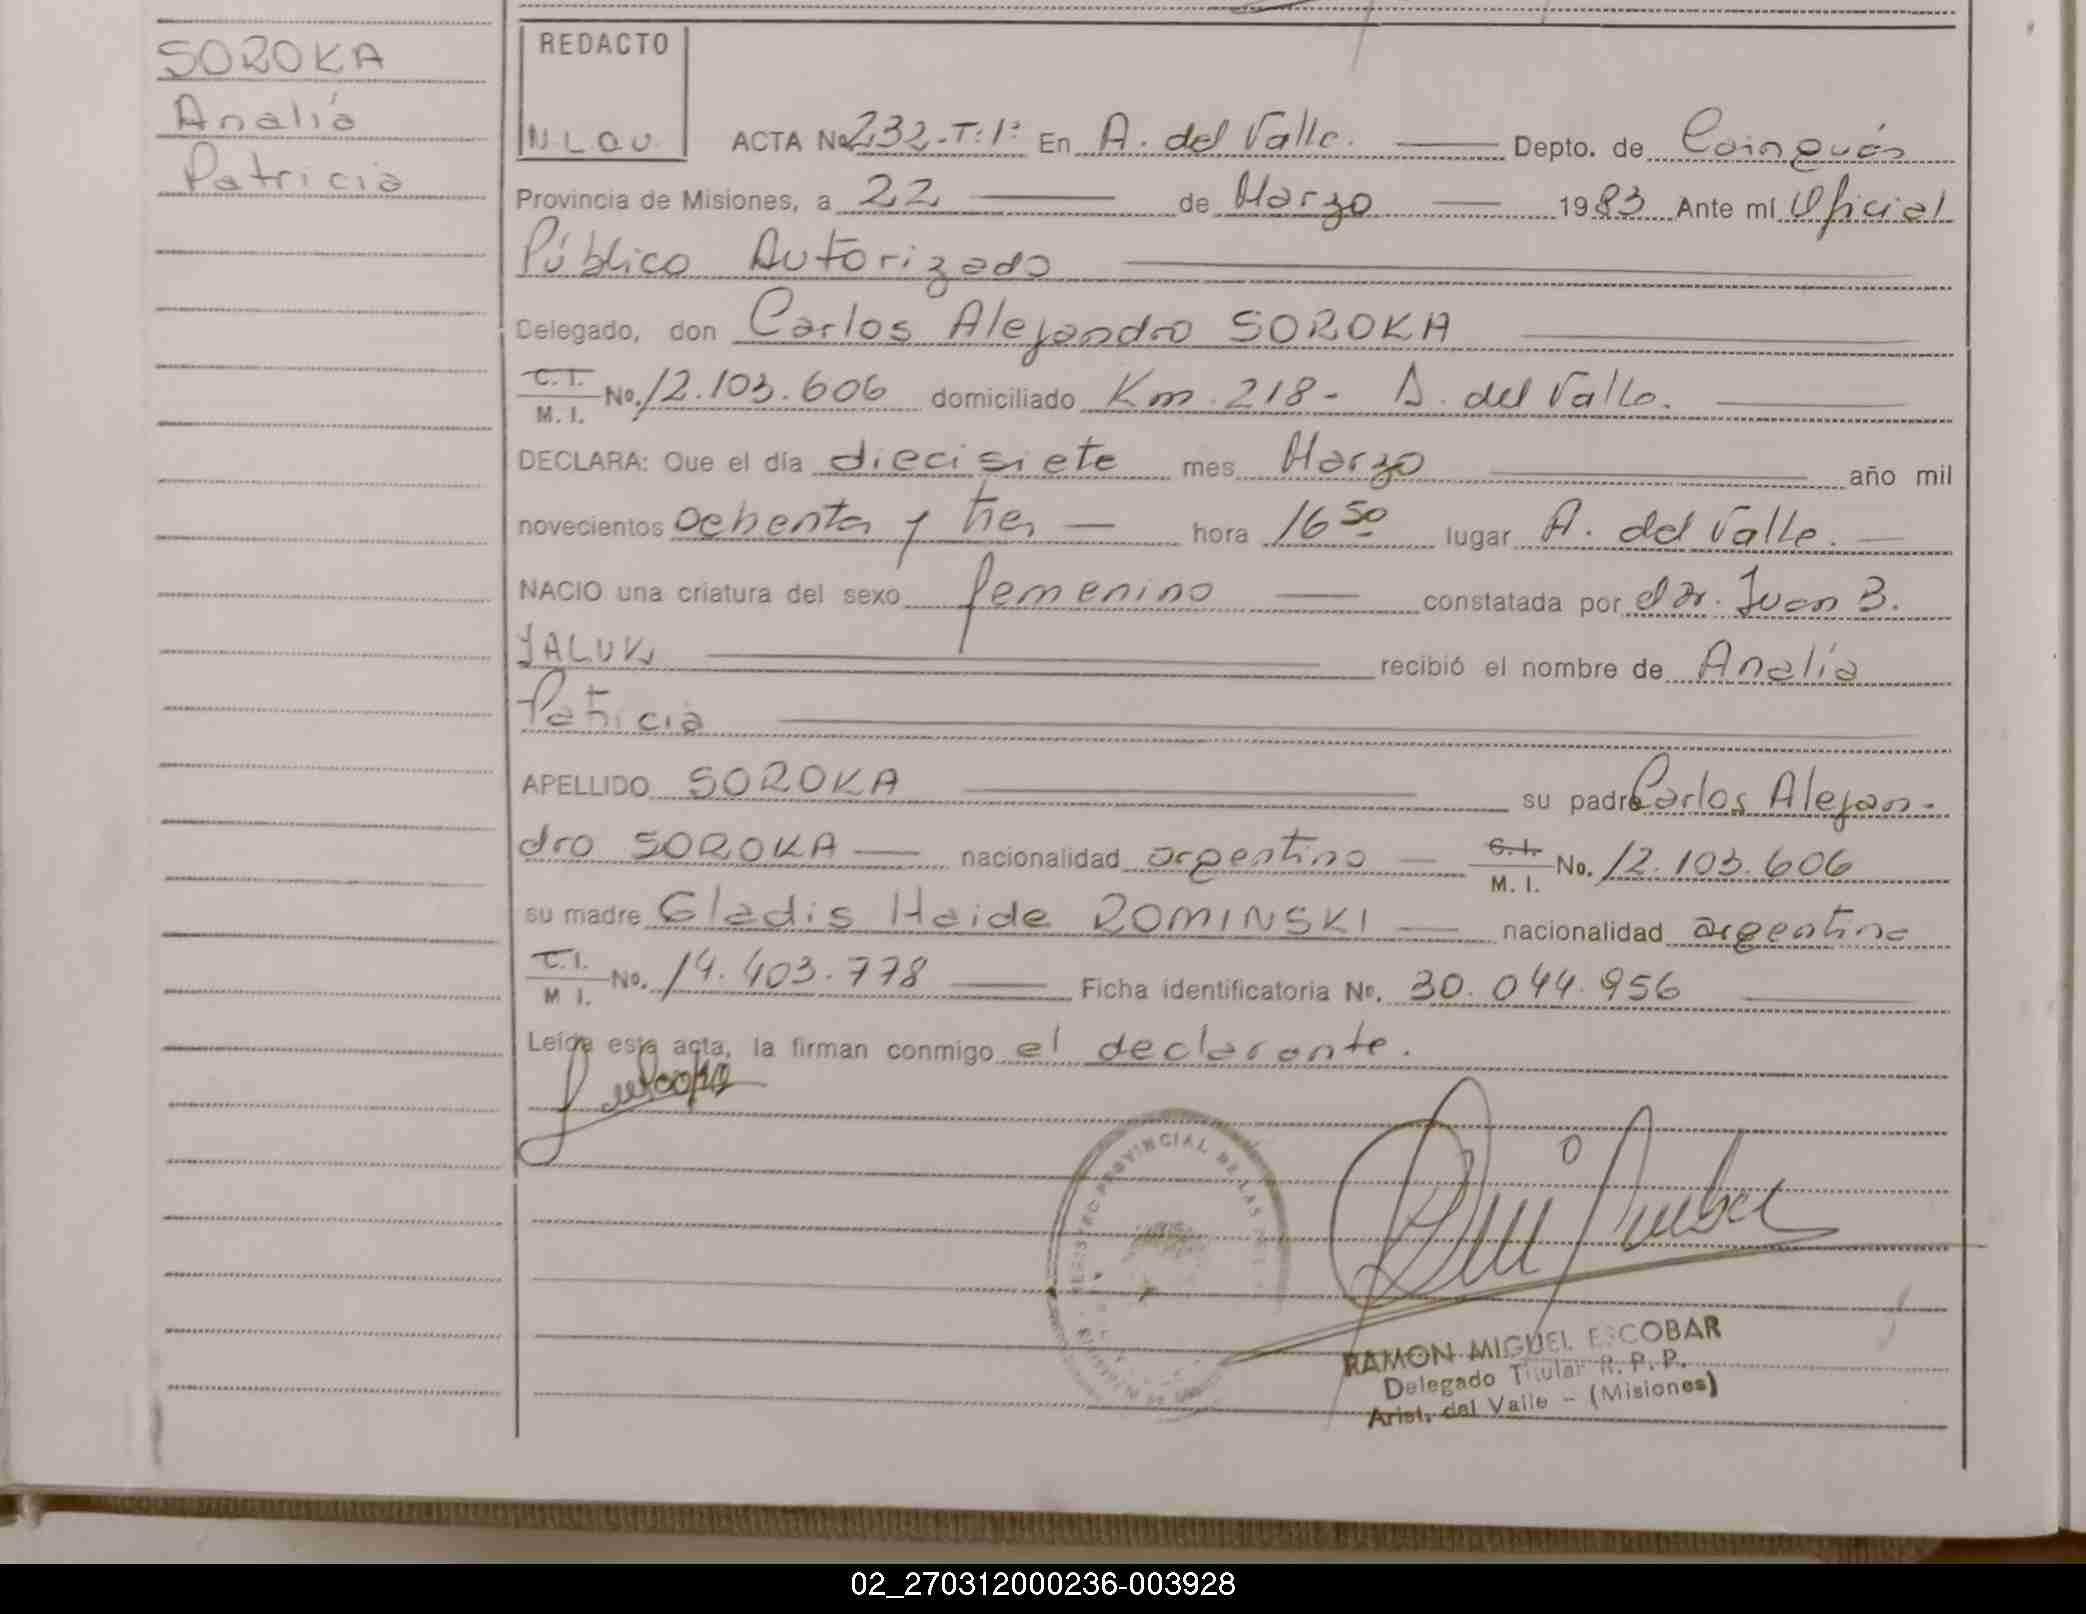 SOROKA
Analía
Patricia
REDACTO
N.L.O.U.
ACTA No 232-T:1º En A. del Valle. Depto. de Cainguás
Provincia de Misiones, a 22 de Marzo 1983 Ante mí Oficial
Público Autorizado
Delegado, don Carlos Alejandro SOROKA
C.I. M.I. No. 12.103.606 domiciliado Km. 218- A. del Valle.
DECLARA: Que el día diecisiete mes Marzo año mil
novecientos ochenta y tres hora 16 50 lugar A. del Valle.
NACIO una criatura del sexo femenino constatada por el Dr. Juan B.
YALUK recibió el nombre de Analía
Patricia
APELLIDO SOROKA su padre Carlos Alejan-
dro SOROKA nacionalidad argentino C.I. M.I. No. 12.103.606
su madre Gladis Haide ROMINSKI nacionalidad argentina
C.I. M I. No. 14.403.778 Ficha identificatoria No. 30.044.956
Leída esta acta, la firman conmigo el declarante.
REGISTRO PROVINCIAL DE LAS
RAMON MIGUEL ESCOBAR
Delegado Titular R. P. P.
Arist. del Valle - (Misiones)
02_270312000236-003928